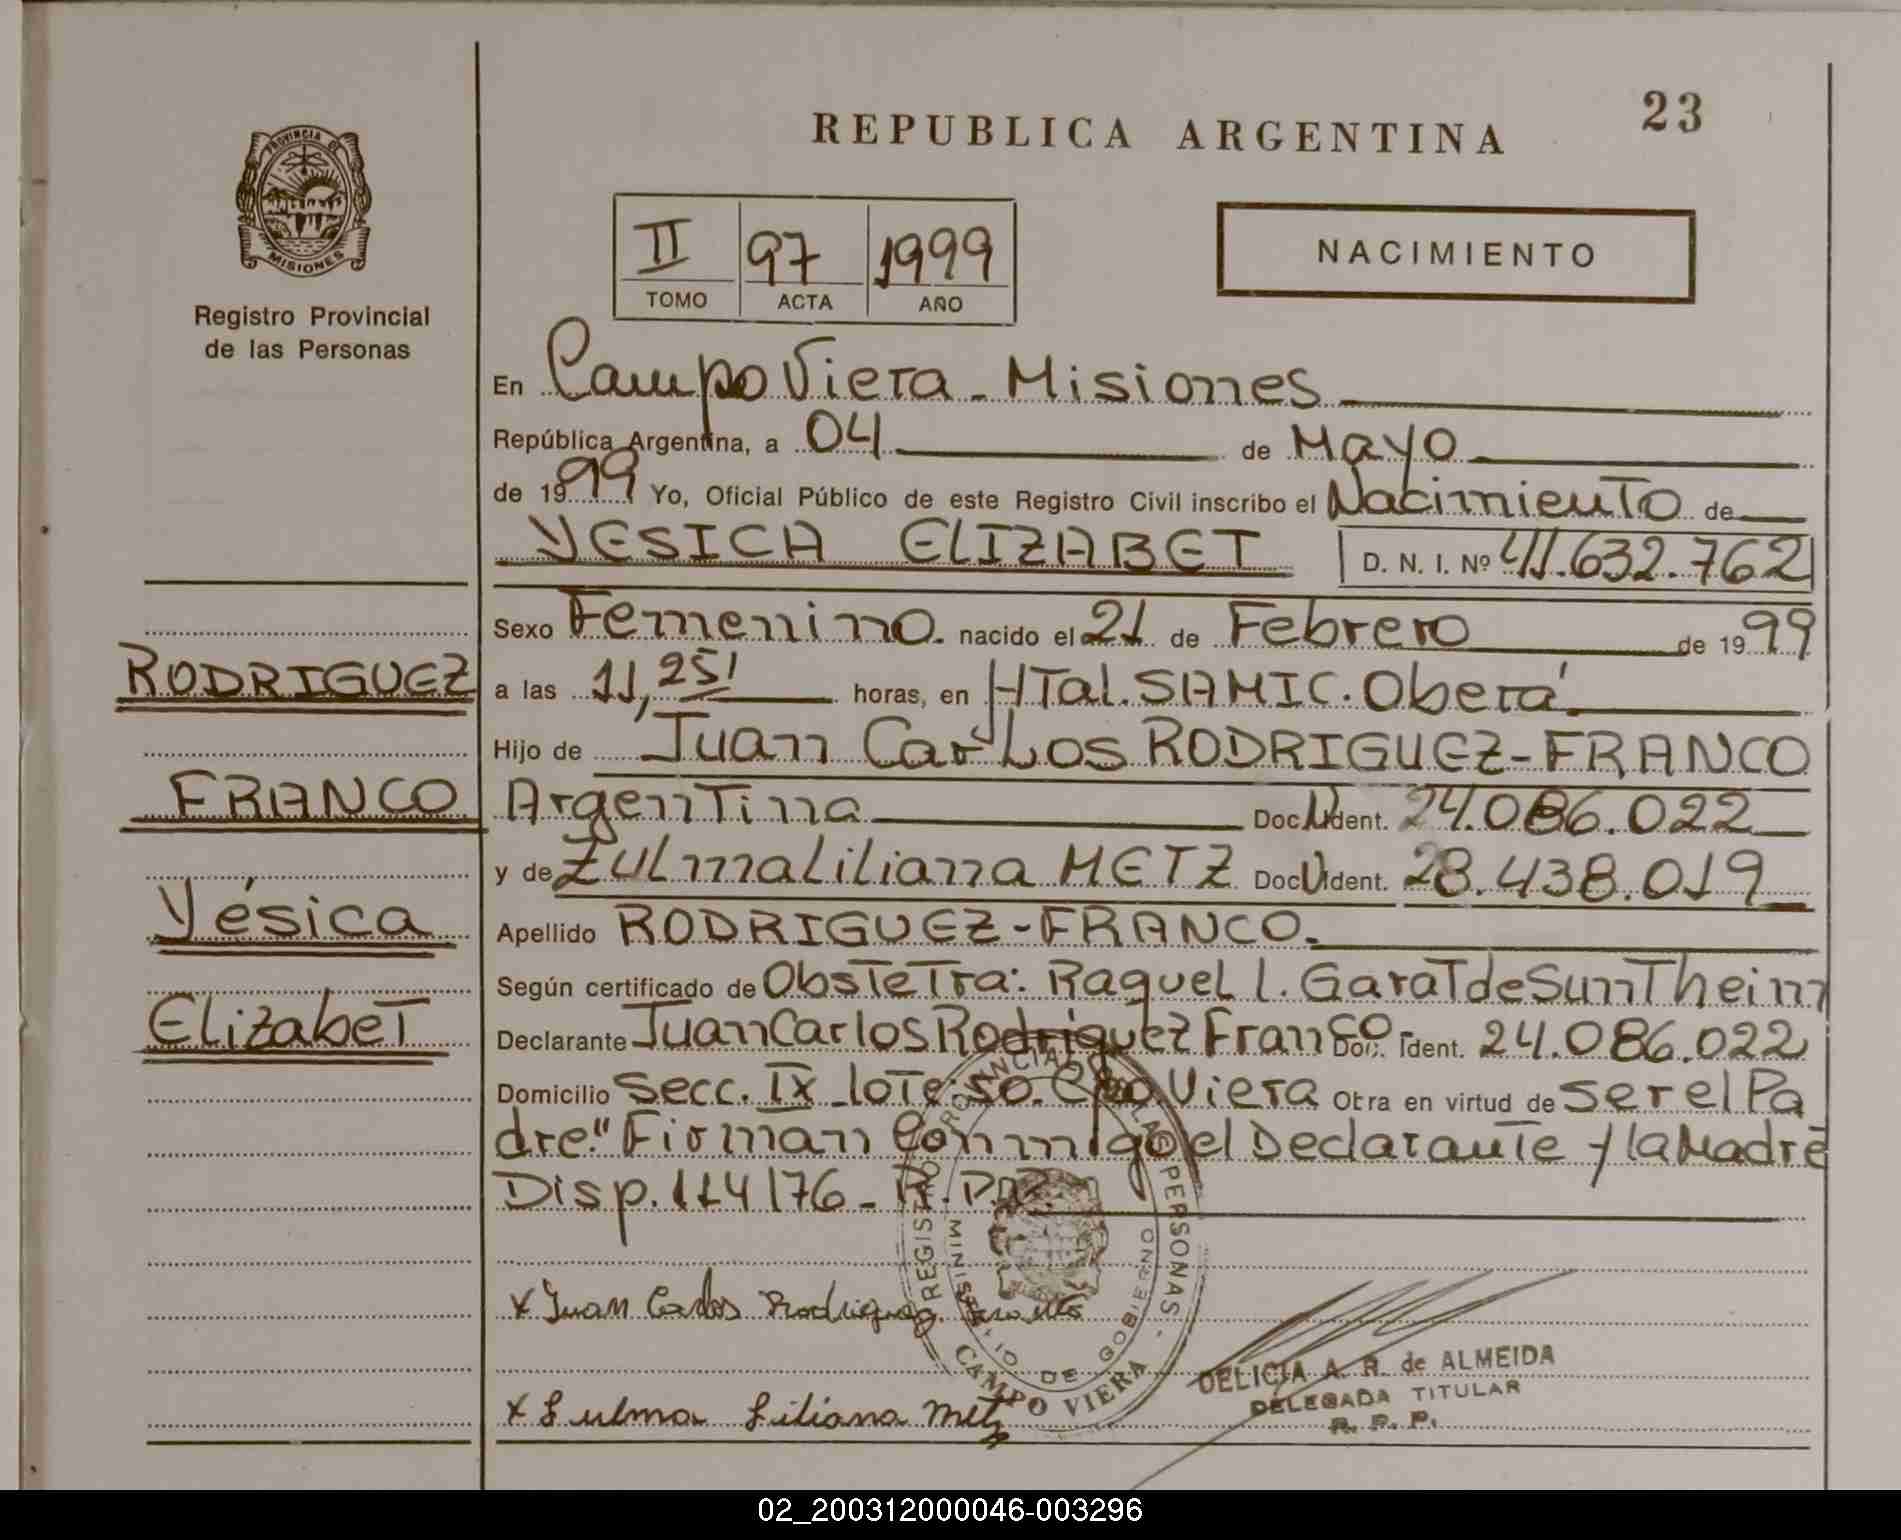 REPUBLICA ARGENTINA
23
PROVINCIA DE
MISIONES
Registro Provincial
de las Personas
II 97 1999
TOMO ACTA AÑO
NACIMIENTO
En Campo Viera - Misiones
República Argentina, a 04 de Mayo
de 1999 Yo, Oficial Público de este Registro Civil inscribo el Nacimiento de
YESICA ELIZABET D. N. I. Nº 41.632.762
Sexo Femenino. nacido el 21 de Febrero de 1999
RODRIGUEZ
a las 11,25' horas, en HTal. SAMIC. Oberá
Hijo de Juan Carlos RODRIGUEZ-FRANCO
FRANCO
Argentina Doc. U Ident. 24.086.022
y de Zulma Liliana METZ Doc. U Ident. 28.438.019
Yésica
Apellido RODRIGUEZ-FRANCO.
Según certificado de Obstetra: Raquel l. Garat de SunTheim
Elizabet
Declarante Juan Carlos Rodriguez Franco- Doc. Ident. 24.086.022
Domicilio Secc. IX lote 50. Cpo Viera Otra en virtud de ser el Pa
dre." Firman Conmigo el Declarante y la Madre
Disp. 114/76 - R.P.P.
x Juan Carlos Rodriguez Franco
x Zulma Liliana Metz
REGISTRO PROVINCIAL DE LAS PERSONAS -
MINISTERIO DE GOBIERNO
CAMPO VIERA
DELICIA A. R. de ALMEIDA
DELEGADA TITULAR
R. P. P.
02_200312000046-003296